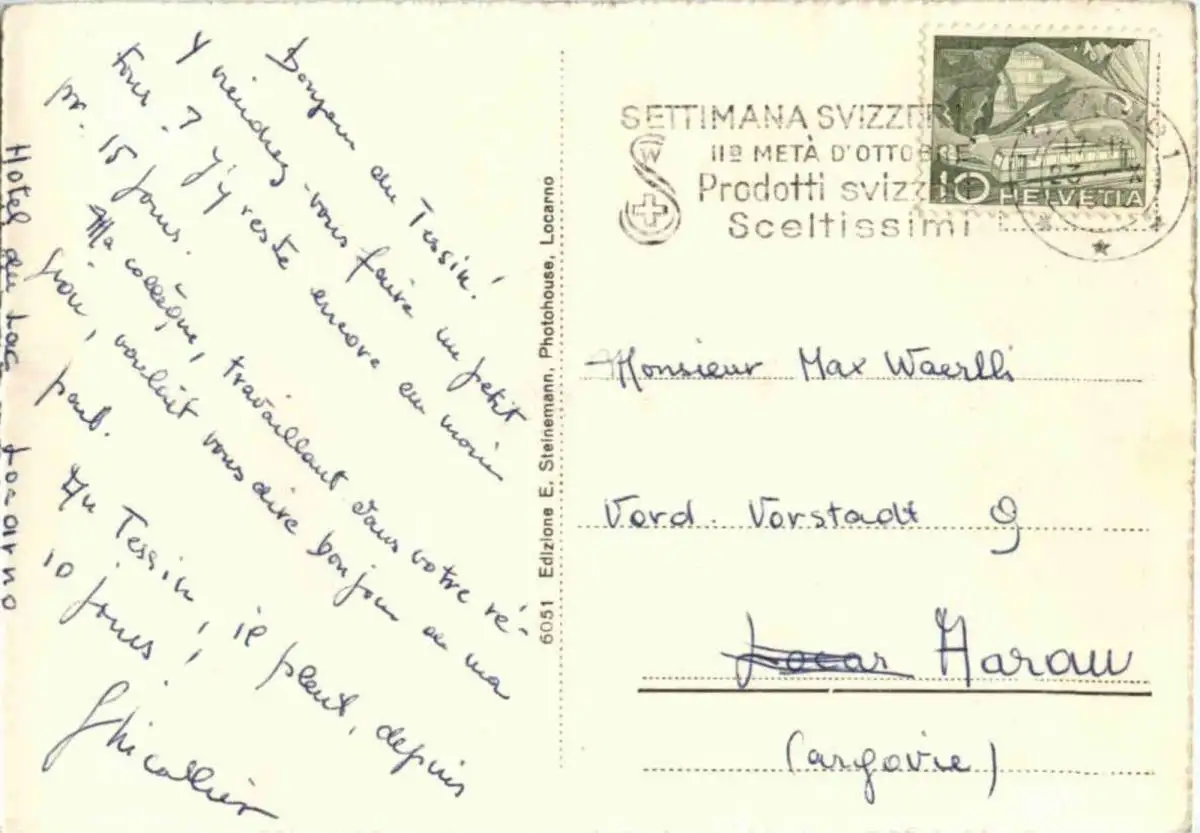 Bonjour du Tessin!
Y viendrez-vous faire un petit
tour? J'y reste encore au moins
pr. 15 jours.
Ma collègue, travaillant dans votre ré-
gion, voulait vous dire bonjour de ma
part.
Au Tessin, il pleut, depuis
10 jours!
Hotel du Lac Locarno
6051 Edizione E. Steinemann, Photohouse, Locarno
SETTIMANA SVIZZERA
IIª METÀ D'OTTOBRE
Prodotti svizzeri
Sceltissimi
W
10 HELVETIA
Monsieur Max Waerlli
Vord. Vorstadt 9
Locar Aarau
(argovie)